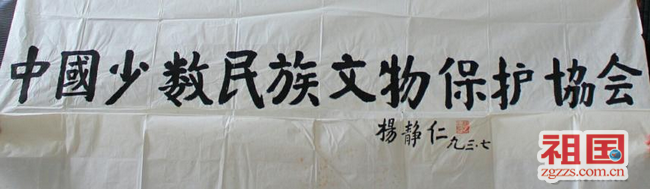 中國少数民族文物保护協会
楊静仁 九三·七
祖国
zgzzs.com.cn